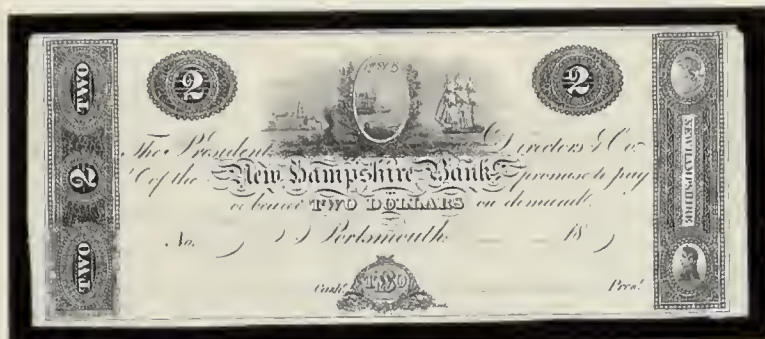 TWO 2 TWO
2
2
NEW HAMPSHIRE
The President Directors & Co.
of the New Hampshire Bank promise to pay
or bearer TWO DOLLARS on demand
No. Portsmouth 18
TWO
Cash.r Pres.t